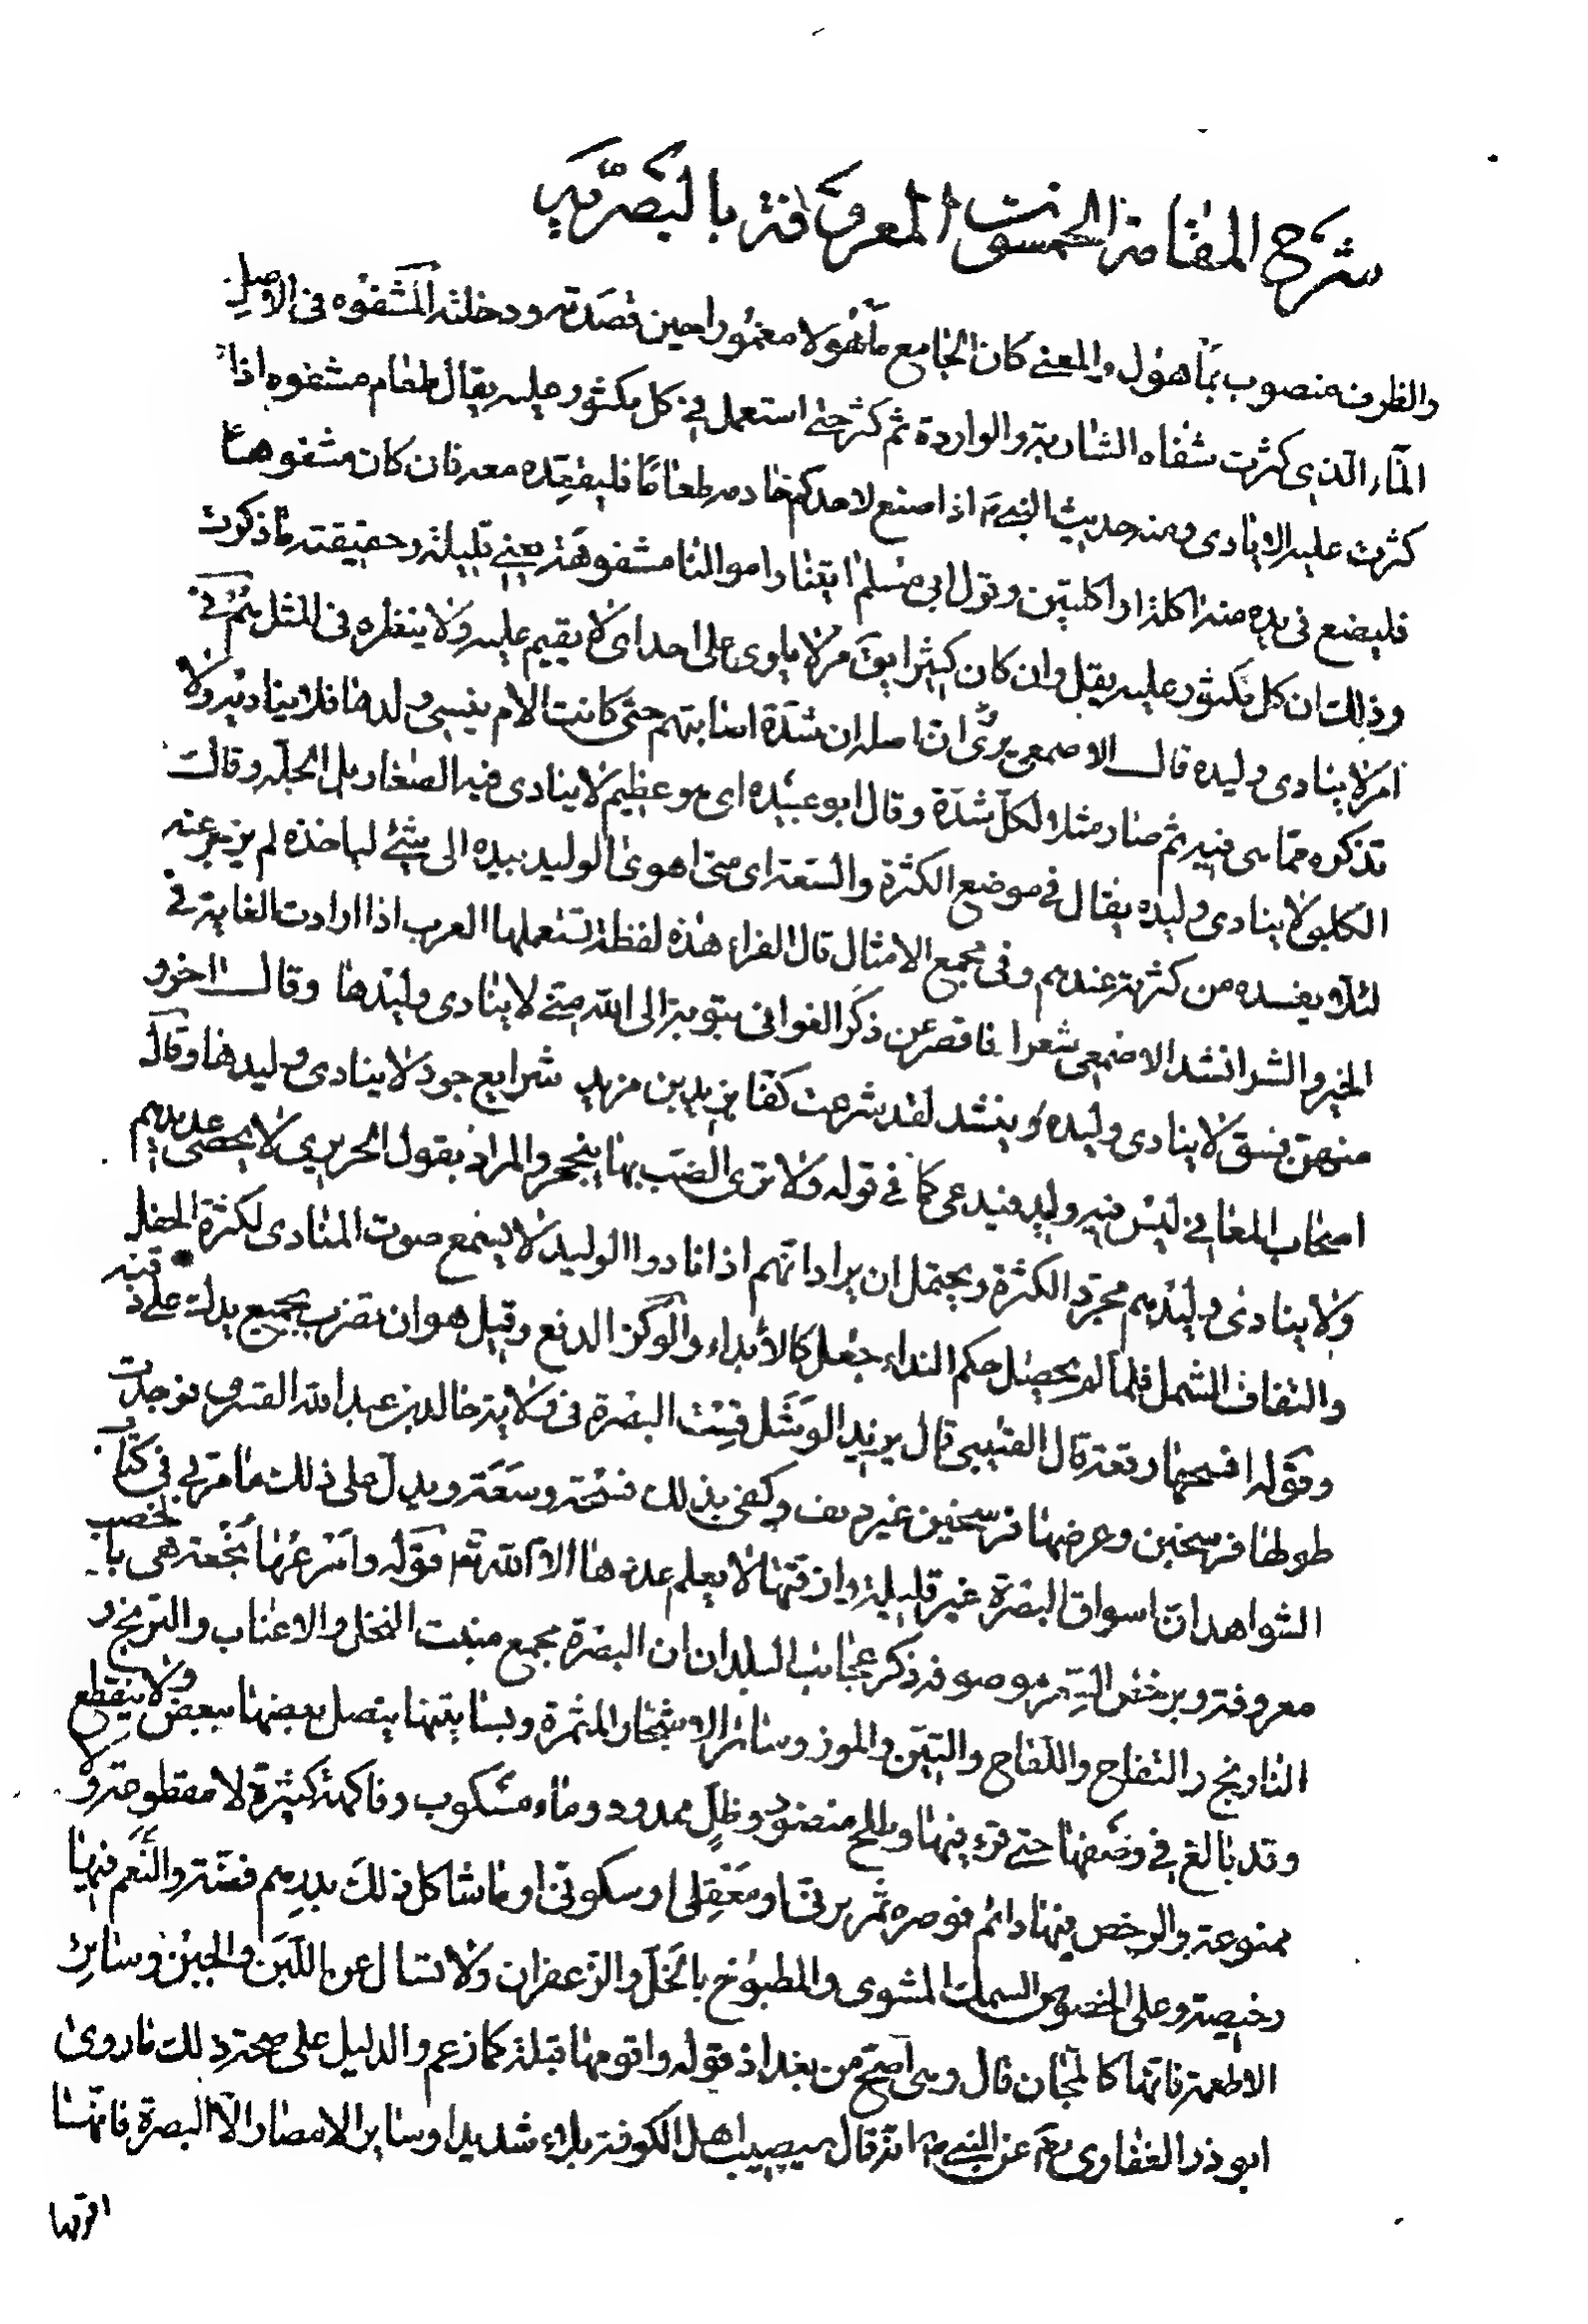 شرح المقامة الخمسون المعروفة بالبصرية
والظرف منصوب بمأهول والمعنى كان الجامع مأهولا مغمورا حين قصدته ودخلته المشفوه في الاصل
الماء الذي كثرت شفاه الشاربة والواردة ثم كثر حتى استعمل في كل مكثور عليه يقال طعام مشفوه اذا
كثرت عليه الايادى ومنه حديث النبي م اذا صنع لاحدكم خادمه طعاما فليقعده معه فان كان مشفوها
فليضع في يده منه اكلة او اكلتين وقول ابي مسلم ايقنا را موالنا مشفوهة يعني قليلة وحقيقته ما ذكرت
وذلك ان كل مكثور عليه يقل وان كان كثيرا يوق مر لا ياوى على احد اى لا يقيم عليه ولا ينتظره في المثل هم في
امر لا ينادى وليده قال الاصمعي يرى ان اصله ان شدة اصابتهم حتى كانت الام ينسى ولدها فلا يناديه ولا
تذكره مما هى فيه ثم صار مثلا لكل شدة وقال ابو عبيده اى هو عظيم لا ينادى فيه الصغار بل الجلة وقالت
الكلبى لا ينادى وليده يقال في موضع الكثرة والسعة اى متى اهوى الوليد بيده الى شئ لياخذه لم يزجر عنه
لئلا يفسده من كثرته عندهم وفى مجمع الامثال قال الفراء هذه لفظة تستعملها العرب اذا ارادت الغاية في
الخير والشر انشد الاصمعى شعرا فاقصر عن ذكر الغوانى بتوبة الى الله منى لا ينادى وليدها وقال اخر و
منهن فسق لا ينادى وليده وينشد لقد شرعت كفا يزيد بن مزيد شرايع جود لا ينادى وليدها وقال
اصحاب المعانى ليس فيه وليد فيدعى كما في قوله ولا ترى الضب بها ينجحر والمراد بقول الحريري لا يحصى عديدهم
ولا ينادى وليدهم مجرد الكثرة ويحتمل ان يراد انهم اذا نادوا الوليد لا يسمع صوت المنادى لكثرة الحفل
والتفاف الشمل فلما لم يحصل حكم النداء جعل كالابداء والوكز الدفع وقيل هو ان تضرب بجميع يدك على ذقنه
وقوله افسحها رقعة قال القتيبى قال يزيد الوشل قست البصرة فى ولاية خالد بن عبد الله القسرى فوجدت
طولها فرسخين وعرضها فرسخين غير دنف وكفى بذلك فسحة وسعة ويدل على ذلك ما مر بي في كتاب
الشواهد ان اسواق البصرة غير قليلة وازقتها لا يعلم عددها الا الله تعم قوله وامرعها نجعة هى بالخصب
معروفة وبرخص التمر موصوفة ذكر عجائب البلدان ان البصرة مجمع منبت النخل والاعناب والترنج و
النارنج والتفاح واللفاح والتين والموز وسائر الاشجار المثمرة وبساتينها يتصل بعضها ببعض ولا ينقطع
وقد بالغ في وصفها حتى قرء فيها وطلح منضود وظل ممدود وماء مسكوب وفاكهة كثيرة لا مقطوعة ولا
ممنوعة والرخص فيها دائم قوصره تمر برنى او معقلى او سكونى او ما شاكل ذلك بدرهم فضة والنعم فيها
رخيصة وعلى الخصوص السمك المشوى والمطبوخ بالخل والزعفران ولا تسال عن اللبن والجبن وسائر
الاطعمة فانها كالمجان قال وهى اصح من بغداد قوله واقومها قبلة كما زعم والدليل على صحة ذلك ما روى
ابو ذر الغفارى رض عن النبي م انه قال سيصيب اهل الكوفة بلاء شديدا وساير الامصار الا البصرة فانها
اقومها